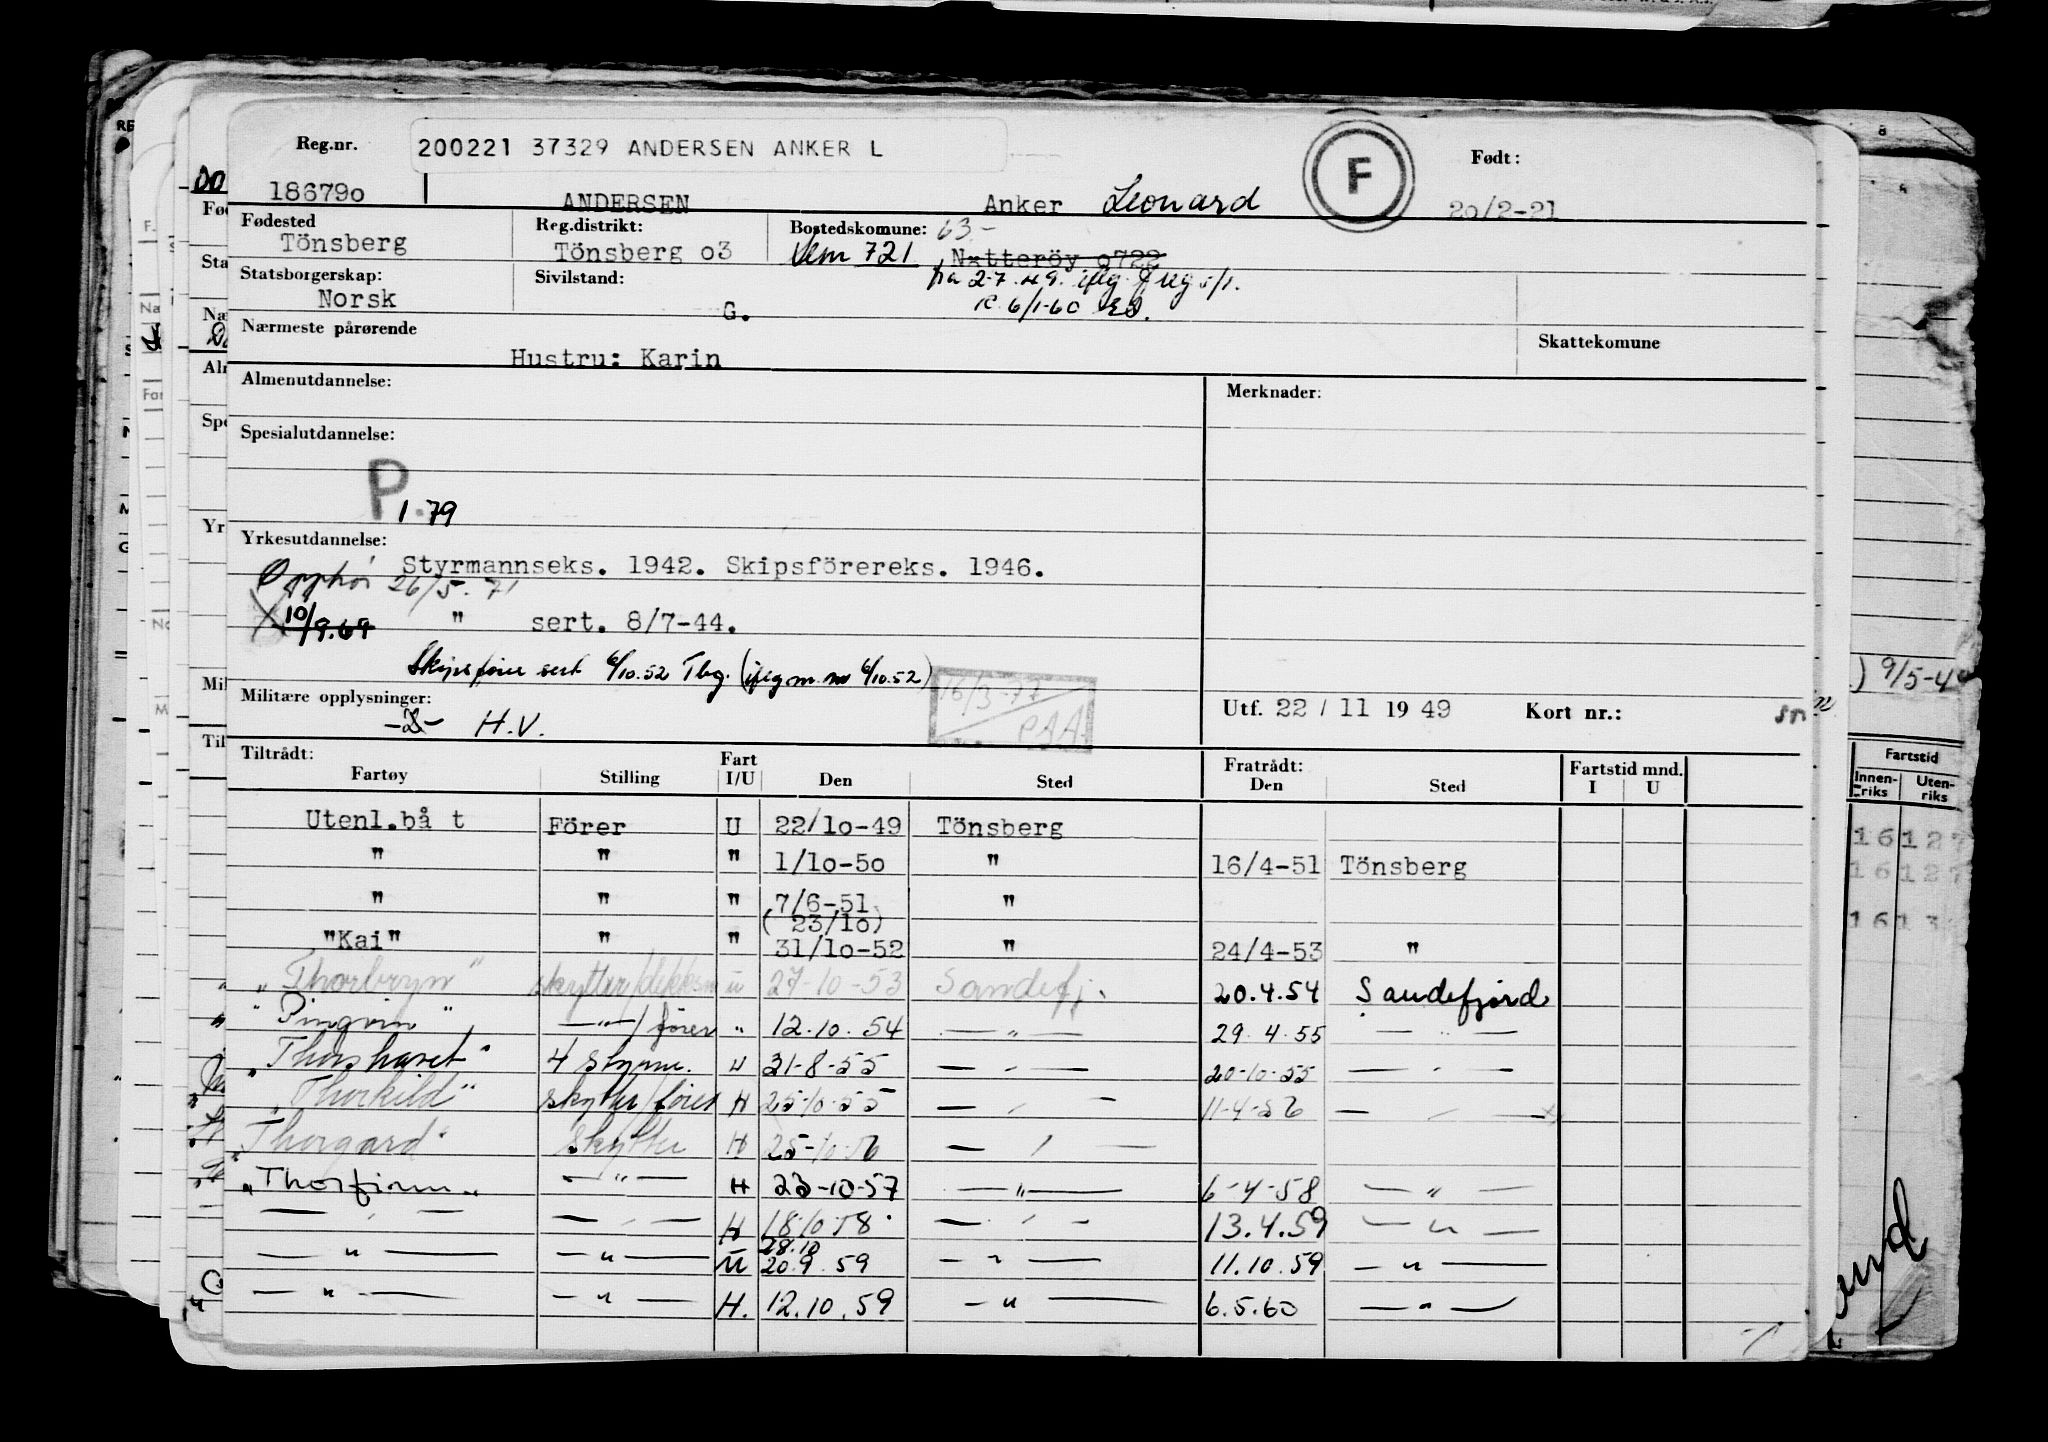 Reg.nr. 200221 37329 ANDERSEN ANKER L F Født:
186790 ANDERSEN Anker Leonard 20/2-21
Fødested Reg.distrikt: Bostedskomune: 63-
Tönsberg Tönsberg o3 Sem 721 Nøtteröy o722
Statsborgerskap: Sivilstand: fra 2-7.49.
Norsk G. 6/1-60
Nærmeste pårørende Skattekomune
Hustru: Karin
Almenutdannelse: Merknader:
Spesialutdannelse:
P 1.79
Yrkesutdannelse:
Styrmannseks. 1942. Skipsförereks. 1946.
Opphør 26/5.71
10/9.69 " sert. 8/7-44.
Skipsfører sert 6/10.52 Tbg. ( 6/10.52)
Militære opplysninger: 16/3-77 Utf. 22 / 11 19 49 Kort nr.:
H.V. PAA
Tiltrådt: Fart Fratrådt: Fartstid mnd.
Fartøy Stilling I/U Den Sted Den Sted I U
Utenl.bå t Förer U 22/lo-49 Tönsberg
" " " 1/lo-50 " 16/4-51 Tönsberg
" " " 7/6-51 "
(23/lo)
"Kai" " " 31/lo-52 " 24/4-53 "
"Thorbryn" skytter/dekksm u 27-10-53 Sandefj. 20.4.54 Sandefjord
"Pingvin" —"—/förer " 12.10.54 —"— 29.4.55 —"—
"Thorshavet" 4 styrm. " 31-8-55 —"— 20-10-55 —"—
"Thorkild" skytter/fører H 25-10-55 —"— 11-4-56 —"—
"Thorgard" skytter H 25-10-56 —"—
"Thorfinn" —"— H 23-10-57 —"— 6-4-58 —"—
—"— —"— H 18.10.58 —"— 13.4.59 —"—
28.10
—"— —"— U 20.9.59 —"— 11.10.59 —"—
—"— —"— H. 12.10.59 —"— 6.5.60 —"—
) 9/5-4
Fartstid
Innenriks Utenriks
16 127
16 127
16 13